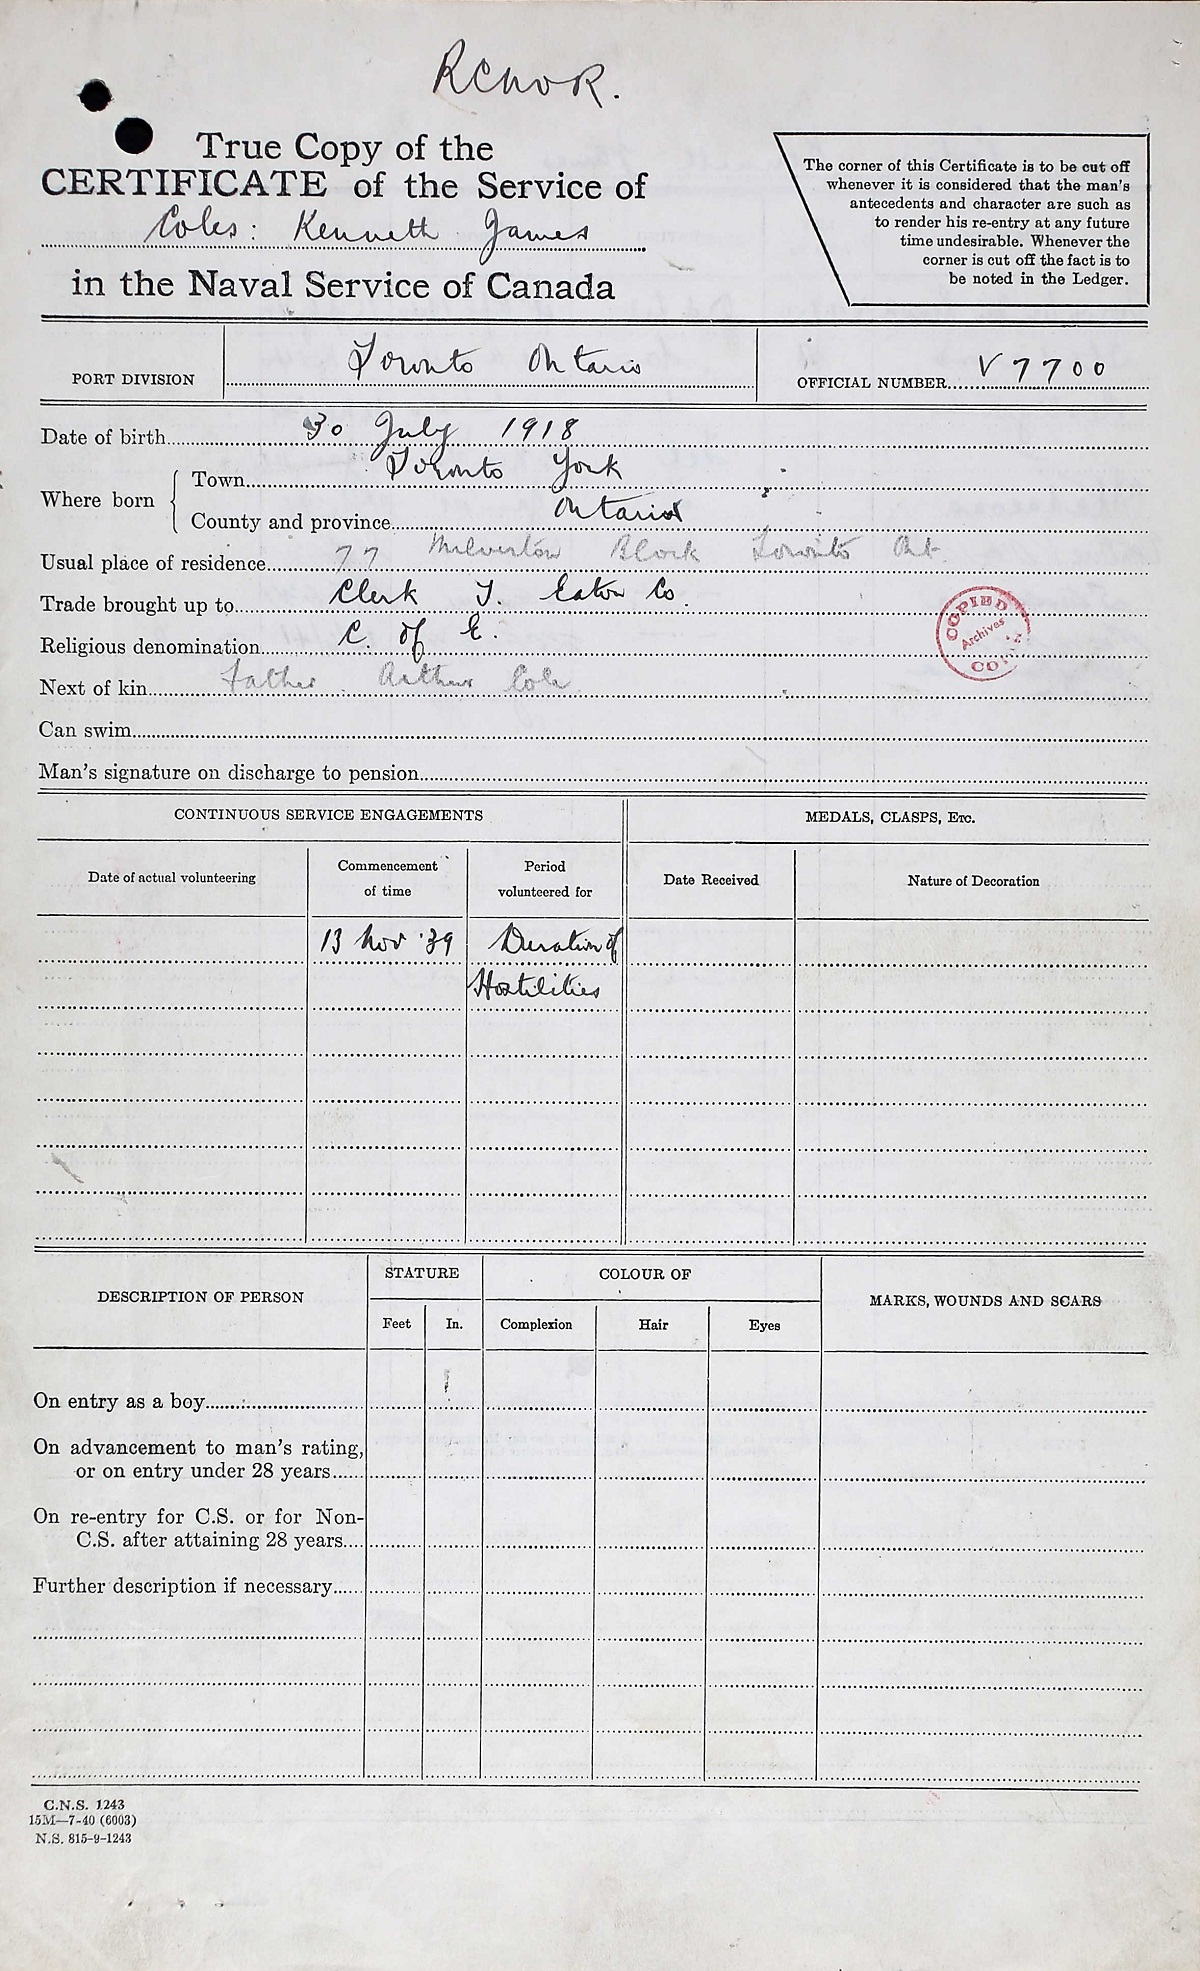 RCNVR.
True Copy of the
CERTIFICATE of the Service of
Coles: Kenneth James
in the Naval Service of Canada
The corner of this Certificate is to be cut off
whenever it is considered that the man's
antecedents and character are such as
to render his re-entry at any future
time undesirable. Whenever the
corner is cut off the fact is to
be noted in the Ledger.
PORT DIVISION Toronto Ontario OFFICIAL NUMBER V 7700
Date of birth 30 July 1918
Where born
Town Toronto York
County and province Ontario
Usual place of residence 77 Milverton Toronto Ont.
Trade brought up to Clerk T. Eaton Co.
Religious denomination C. of E.
COPIED
Archives
Next of kin Father Arthur
Can swim
Man's signature on discharge to pension
CONTINUOUS SERVICE ENGAGEMENTS MEDALS, CLASPS, Etc.
Date of actual volunteering Commencement of time Period volunteered for Date Received Nature of Decoration
13 Nov '39 Duration of
Hostilities
DESCRIPTION OF PERSON STATURE COLOUR OF MARKS, WOUNDS AND SCARS
Feet In. Complexion Hair Eyes
On entry as a boy
On advancement to man's rating,
or on entry under 28 years
On re-entry for C.S. or for Non-
C.S. after attaining 28 years
Further description if necessary
C.N.S. 1243
15M—7-40 (6003)
N.S. 815-9-1243